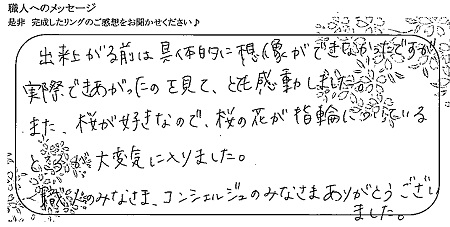 職人へのメッセージ
是非 完成したリングのご感想をお聞かせください♪
出来上がる前は具体的に想像ができなかったですが
実際できあがったのを見て、とても感動しました。
また、桜が好きなので、桜の花が指輪についている
ところが大変気に入りました。
職人のみなさま、コンシェルジュのみなさまありがとうござい
ました。